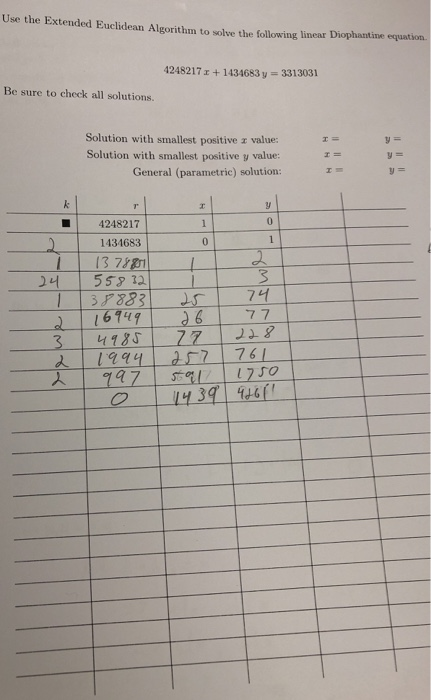 Use the Extended Euclidean Algorithm to solve the following linear Diophantine equation.
4248217 x + 1434683 y = 3313031
Be sure to check all solutions.
Solution with smallest positive x value: x = y =
Solution with smallest positive y value: x = y =
General (parametric) solution: x = y =
k r x y
■ 4248217 1 0
2 1434683 0 1
1 1 2
24 55832 1 3
1 38883 25 74
2 16949 26 77
3 4985 77 228
2 1994 257 761
2 997 591 1750
0 1439